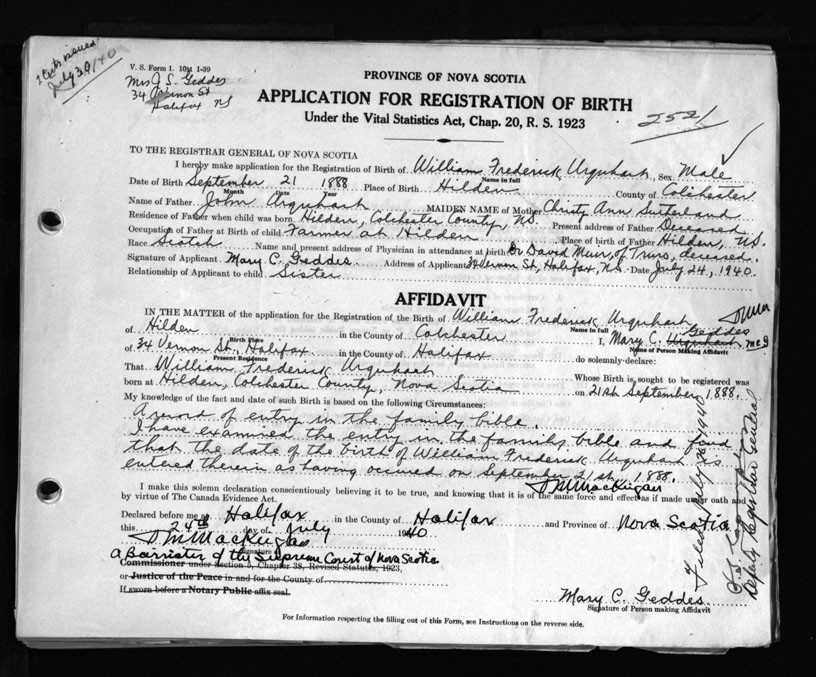 2 Certs issued
July 30/40
V. S. Form 1. 10M 1-39
Mrs J. S. Geddes
34 Vernon St
Halifax NS
PROVINCE OF NOVA SCOTIA
APPLICATION FOR REGISTRATION OF BIRTH
Under the Vital Statistics Act, Chap. 20, R. S. 1923
2521
TO THE REGISTRAR GENERAL OF NOVA SCOTIA
I hereby make application for the Registration of Birth of William Frederick Urquhart, Sex Male
Name in full
Date of Birth September 21 1888 Place of Birth Hilden County of Colchester
Month Date Year
Name of Father John Urquhart MAIDEN NAME of Mother Christy Ann Sutherland
Residence of Father when child was born Hilden, Colchester County, NS Present address of Father Deceased
Occupation of Father at Birth of child Farmer at Hilden Place of birth of Father Hilden, NS.
Race Scotch Name and present address of Physician in attendance at birth Dr David Muir, of Truro, deceased.
Signature of Applicant Mary C. Geddes Address of Applicant 34 Vernon St, Halifax, N.S. Date July 24, 1940.
Relationship of Applicant to child Sister
AFFIDAVIT
IN THE MATTER of the application for the Registration of the Birth of William Frederick Urquhart
Name in full
of Hilden in the County of Colchester I, Mary C. Urquhart Geddes
Birth Place Name of Person Making Affidavit
of 34 Vernon St., Halifax in the County of Halifax do solemnly declare:
Present Residence
That William Frederick Urquhart Whose Birth is sought to be registered was
born at Hilden, Colchester County, Nova Scotia on 21st September, 1888.
My knowledge of the fact and date of such Birth is based on the following Circumstances:
A record of entry in the family bible.
I have examined the entry in the family bible and find
that the date of the birth of William Frederick Urquhart is
entered therein as having occured on September 21st, 1888.
I make this solemn declaration conscientiously believing it to be true, and knowing that it is of the same force and effect as if made under oath and
by virtue of The Canada Evidence Act.
Declared before me at Halifax in the County of Halifax and Province of Nova Scotia
this 24th day of July 1940
Signature
a Barrister of the Supreme Court of Nova Scotia
Commissioner under Section 5, Chapter 38, Revised Statutes, 1923,
or Justice of the Peace in and for the County of
If sworn before a Notary Public affix seal.
Mary C. Geddes
Signature of Person making Affidavit
For Information respecting the filling out of this Form, see Instructions on the reverse side.
Deputy Registrar General